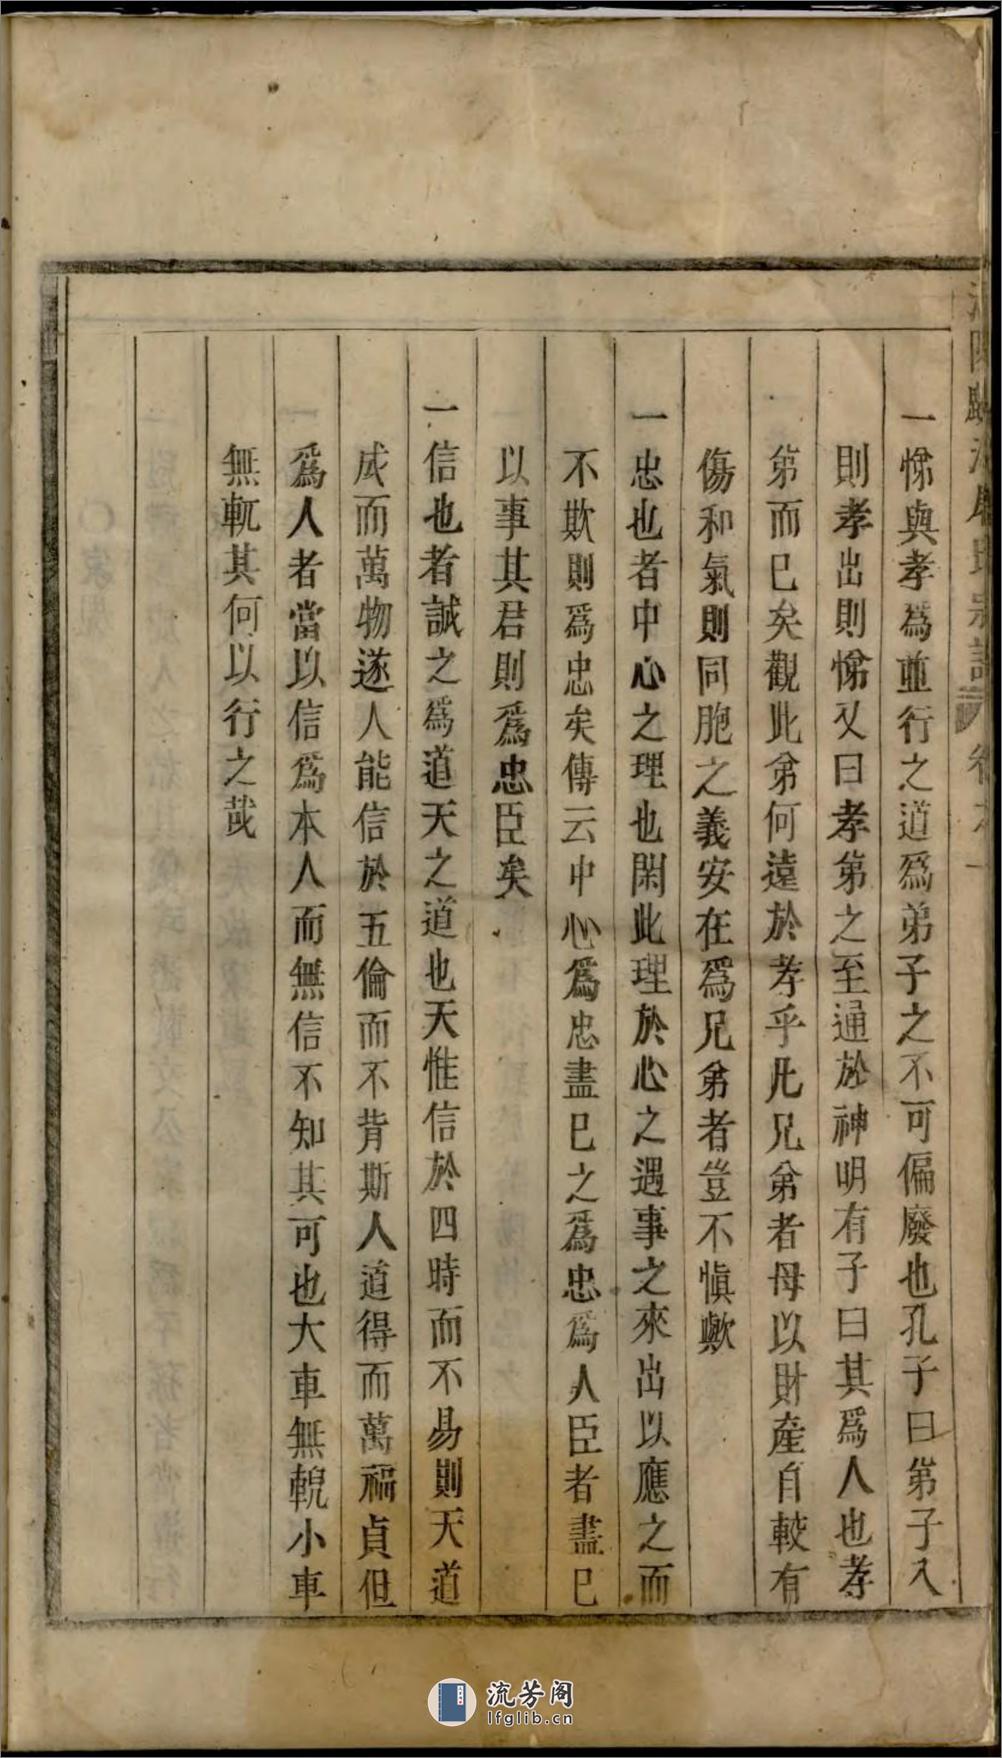 一悌與孝爲並行之道爲弟子之不可偏廢也孔子曰弟子入
則孝出則悌又曰孝第之至通於神明有子曰其爲人也孝
第而已矣觀此弟何遠於孝乎凡兄弟者母以財產自較有
傷和氣則同胞之義安在爲兄弟者豈不愼歟
一忠也者中心之理也閑此理於心之遇事之來出以應之而
不欺則爲忠矣傳云中心爲忠盡已之爲忠爲人臣者盡已
以事其君則爲忠臣矣
一信也者誠之爲道天之道也天惟信於四時而不易則天道
成而萬物遂人能信於五倫而不背斯人道得而萬福貞但
爲人者當以信爲本人而無信不知其可也大車無輗小車
無軏其何以行之哉
流芳阁
lfglib.cn